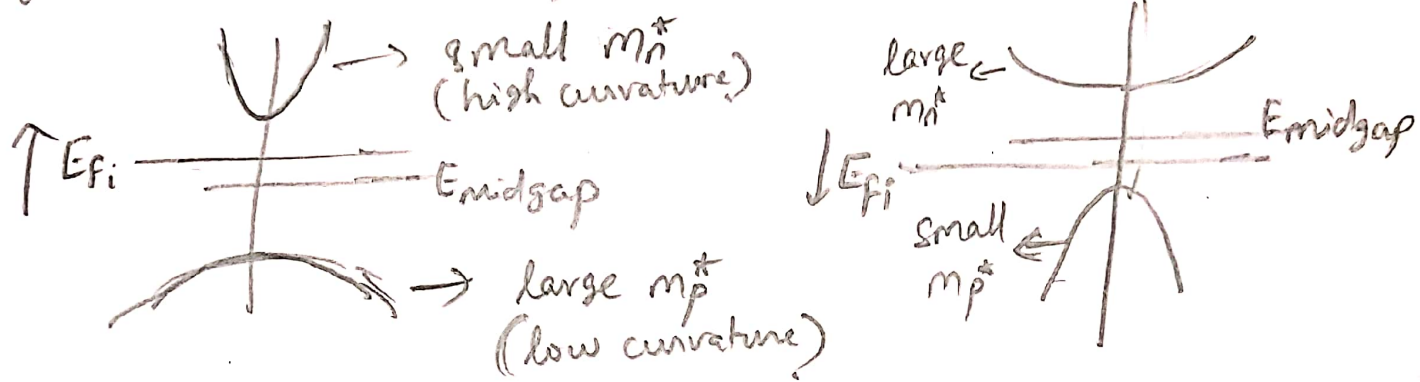 small mn*
(high curvature)
↑ Efi
Emidgap
large mp*
(low curvature)
large
mn*
Emidgap
↓ Efi
small
mp*